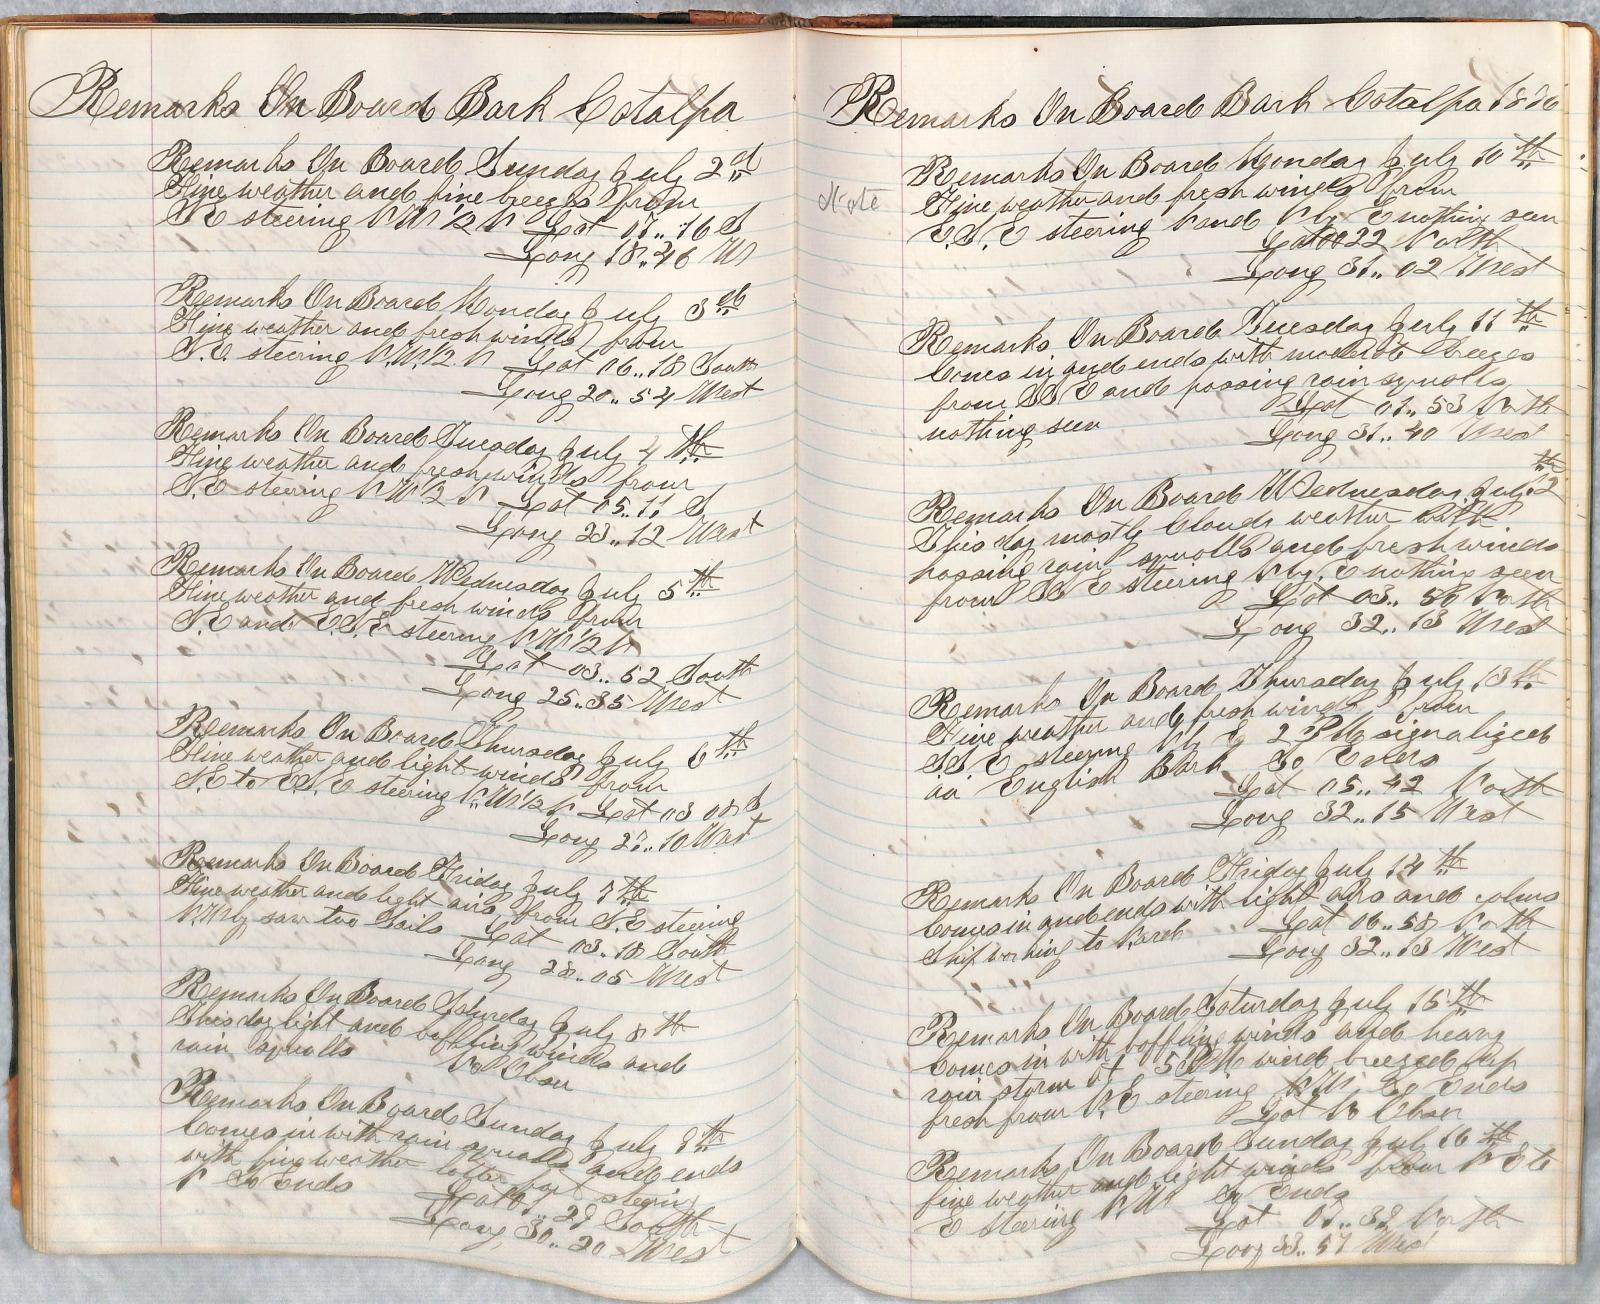 Remarks On Board Bark Catalpa
Remarks On Board Sunday July 2nd
Fine weather and fine breezes from
S.E steering N.W 1/2 N Lat 07..16 S
Long 18..46 W
Remarks On Board Monday July 3rd
Fine weather and fresh winds from
S.E. steering N.W. 1/2 N Lat 06..18 South
Long 20..54 West
Remarks On Board Tuesday July 4th
Fine weather and fresh winds from
S.E steering N W 1/2 N Lat 05..11 S
Long 23..12 West
Remarks On Board Wednesday July 5th
Fine weather and fresh winds from
S.E and E.S.E steering N W 1/2 N
Lat 03..52 South
Long 25..35 West
Remarks On Board Thursday July 6th
Fine weather and light winds from
S.E to E.S.E steering N.W 1/2 N Lat 03 08 S
Long 27..10 West
Remarks On Board Friday July 7th
Fine weather and light airs from S.E steering
saw two Sails Lat 03..18 South
Long 28..05 West
Remarks On Board Saturday July 8th
This day light and baffling winds and
rain squalls No Obser
Remarks On Board Sunday July 9th
Comes in with rain squalls and ends
with fine weather latter part steering
N So Ends Lat 29 South
Long 30..20 West
Remarks On Board Bark Catalpa 1876
Note
Remarks On Board Monday July 10th
Fine weather and fresh winds from
E.S.E steering N and N by E nothing seen
Lat 00 22 North
Long 31..02 West
Remarks On Board Tuesday July 11th
Comes in and ends with moderate breezes
from S S E and passing rain squalls
nothing seen Lat 01..53 North
Long 31..40 West
Remarks On Board Wednesday July 12th
This day mostly Cloudy weather with
passing rain squalls and fresh winds
from S S E steering N by E nothing seen
Lat 03..50 North
Long 32..13 West
Remarks On Board Thursday July 13th
Fine weather and fresh winds from
S S E steering N by 2 PM signalized
an English Bark So Ends
Lat 05..42 North
Long 32..15 West
Remarks On Board Friday July 14th
Comes in and ends with light airs and calms
Ship working to Nard Lat 06..58 North
Long 32..13 West
Remarks On Board Saturday July 15th
Comes in with baffling winds and heavy
rain storm at 5 PM wind breezed up
fresh from N.E steering N.W. So Ends
Lat No Obser
Remarks On Board Sunday July 16th
fine weather and light winds from N E to
E steering N.W So Ends
Lat 07..38 North
Long 33..57 West